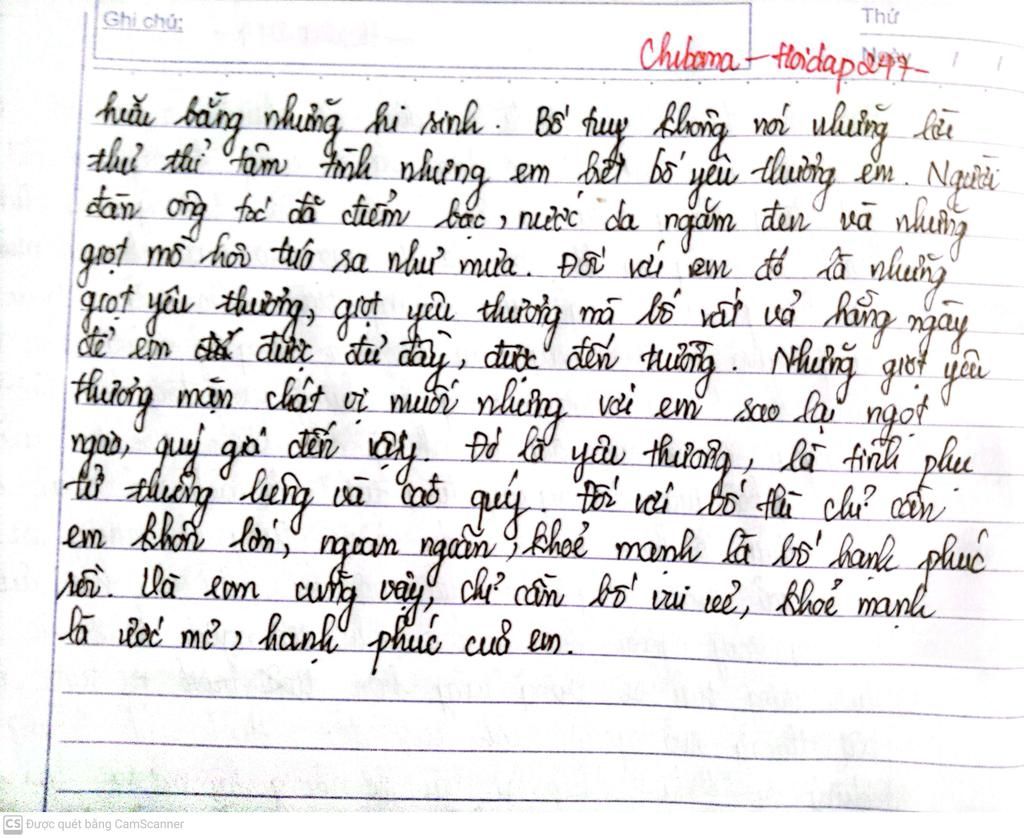 Ghi chú:
Thứ
Ngày
Chibama - Hoidap247-
bằng những hi sinh. Bố tuy không nói những lời
thủ thỉ tâm tình nhưng em biết bố yêu thương em. Người
đàn ông tóc đã điểm bạc, nước da ngăm đen và những
giọt mồ hôi tuô sa như mưa. Đối với em đó là những
giọt yêu thương, giọt yêu thương mà bố vất vả hằng ngày
để em được đủ đầy, được đến trường. Những giọt yêu
thương mặn chát vị muối nhưng với em sao lại ngọt
ngào, quý giá đến vậy. Đó là yêu thương, là tình phụ
tử thiêng liêng và cao quý. Đối với bố thì chỉ cần
em khôn lớn, ngoan ngoãn, khoẻ mạnh là bố hạnh phúc
rồi. Và em cũng vậy, chỉ cần bố vui vẻ, khoẻ mạnh
là ước mơ, hạnh phúc của em.
CS Được quét bằng CamScanner